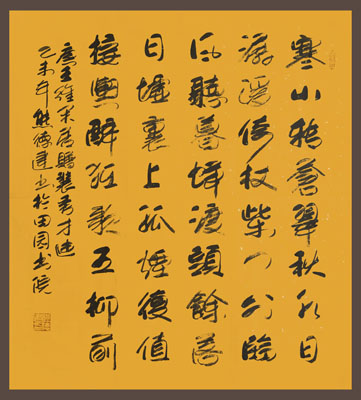 寒山轉蒼翠秋水日
潺湲倚杖柴门外臨
風聽暮蟬渡頭餘落
日墟裏上孤煙復值
接輿醉狂歌五柳前
唐王維贈裴秀才迪
乙未年熊德建书於田园书院